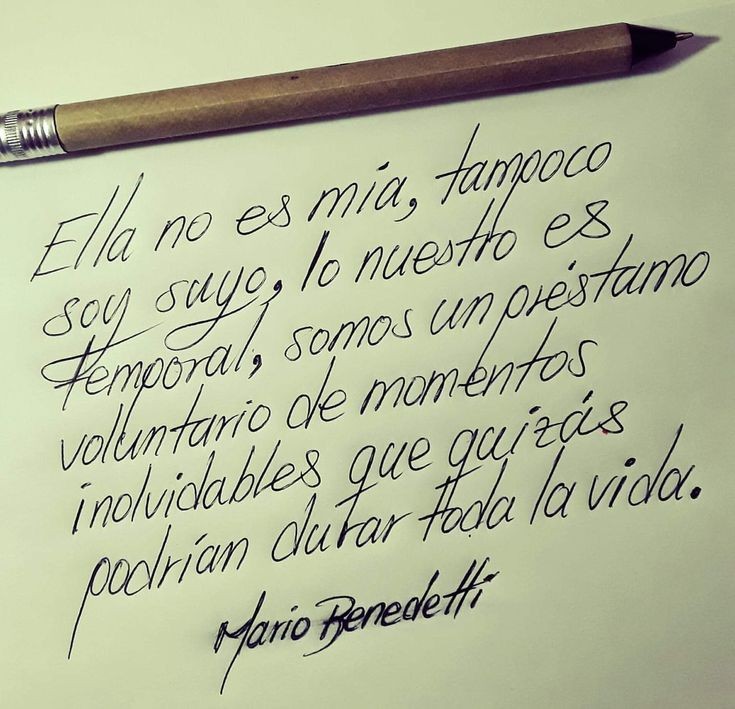 Ella no es mía, tampoco
soy suyo, lo nuestro es
temporal, somos un préstamo
voluntario de momentos
inolvidables que quizás
podrían durar toda la vida.
Mario Benedetti